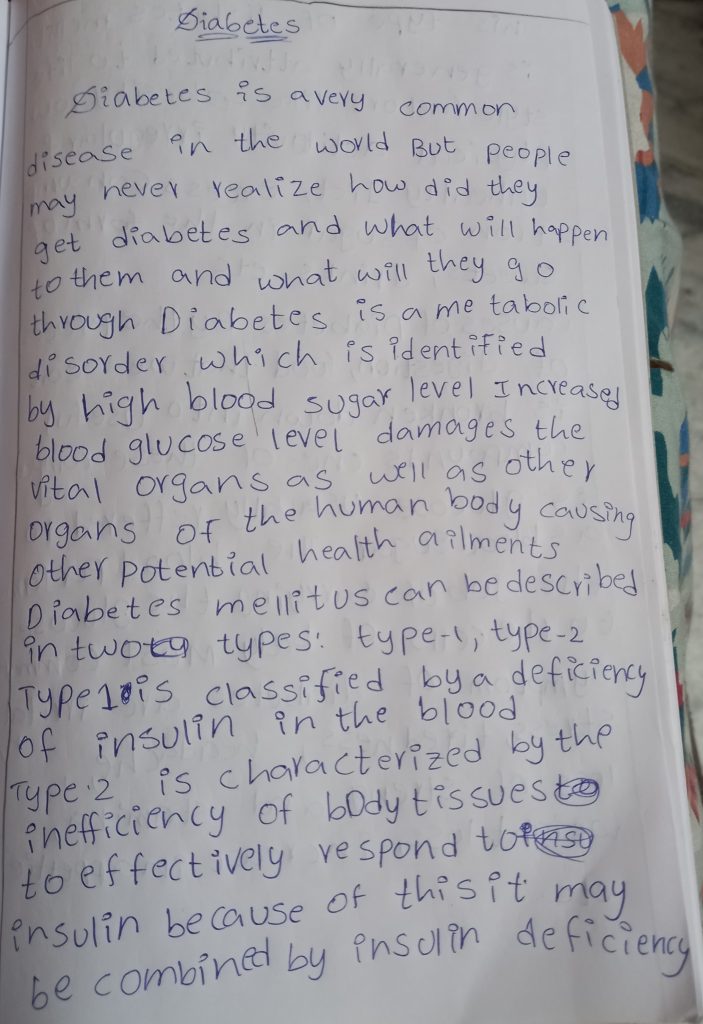 Diabetes
Diabetes is a very common
disease in the world But people
may never realize how did they
get diabetes and what will happen
to them and what will they go
through Diabetes is a metabolic
disorder which is identified
by high blood sugar level Increased
blood glucose level damages the
vital organs as well as other
organs of the human body causing
other potential health ailments
Diabetes mellitus can be described
in two types: type-1, type-2
Type 1 is classified by a deficiency
of insulin in the blood
Type 2 is characterized by the
inefficiency of body tissues
to effectively respond to
insulin because of this it may
be combined by insulin deficiency